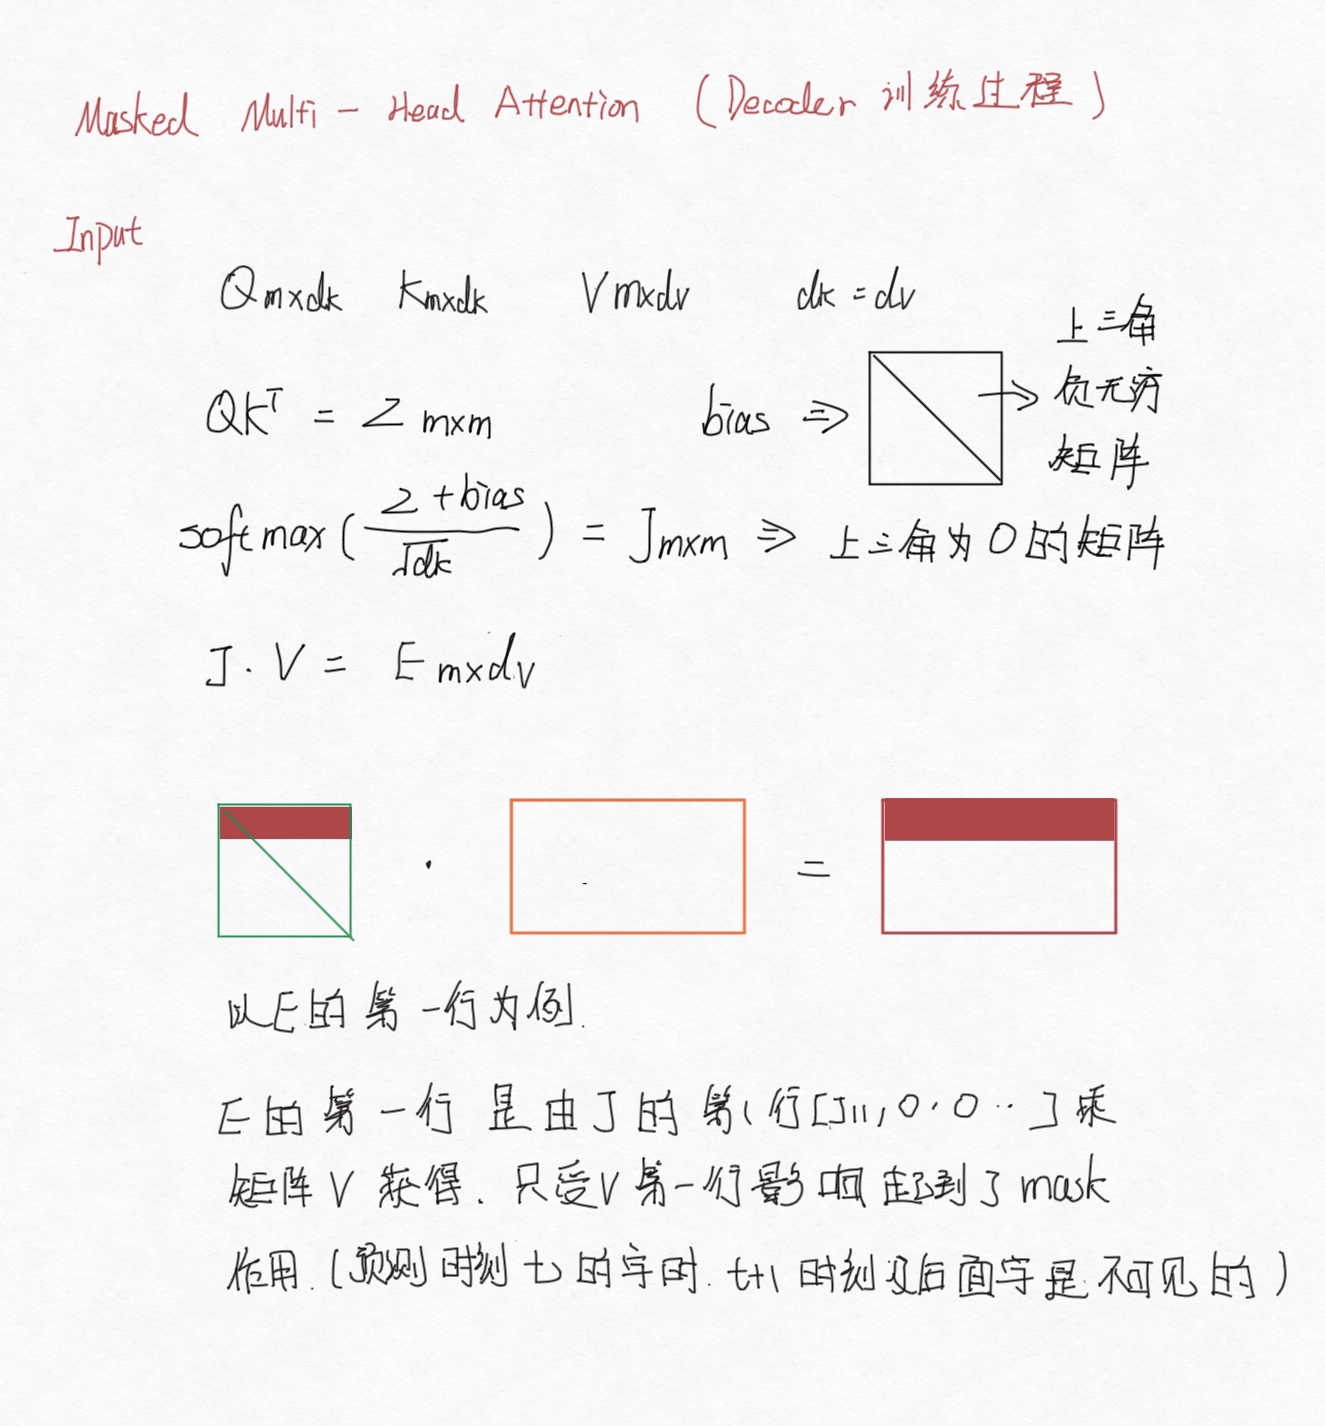 Masked Multi-Head Attention (Decoder 训练过程)
Input
Qm×dk Km×dk Vm×dv dk=dv
QKᵀ = Zm×m bias ⇒ → 上三角
负无穷
矩阵
softmax(Z+bias/√dk) = Jm×m ⇒ 上三角为0的矩阵
J·V = Em×dv
· =
以E的第一行为例.
E的第一行是由J的第1行[J11,0,0..]乘
矩阵V获得.只受V第一行影响起到了mask
作用.(预测时刻t的字时.t+1时刻及后面字是不可见的)